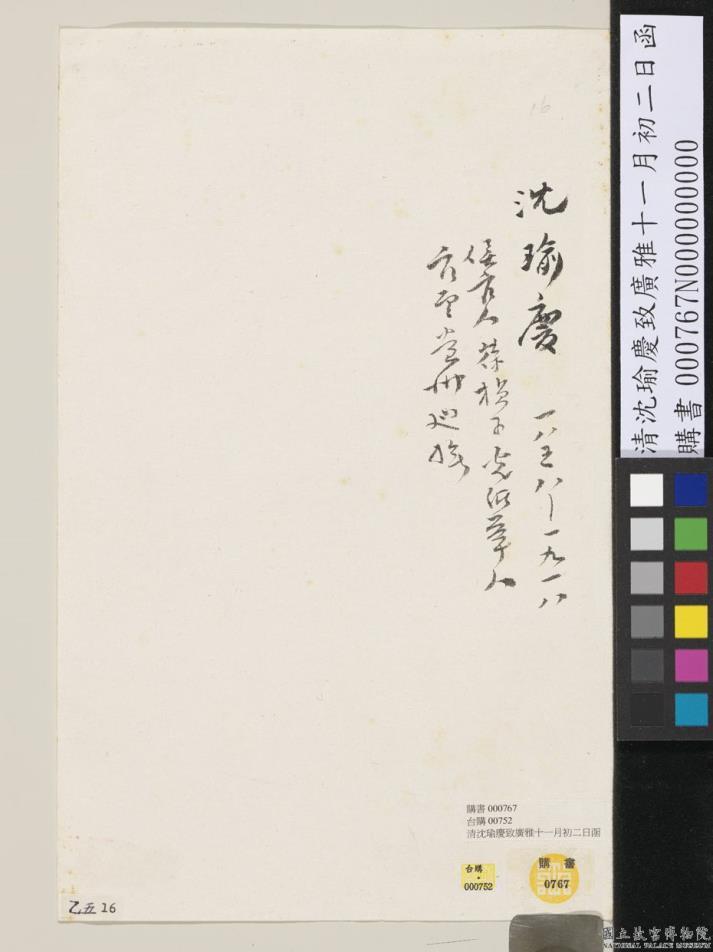 16
沈瑜慶 一八五八—一九一八
侯官人 葆楨子 光緒舉人
官至貴州巡撫
購書 000767
台購 00752
清沈瑜慶致廣雅十一月初二日函
台購
000752
購書
0767
乙五 16
清沈瑜慶致廣雅十一月初二日函
購書 000767N000000000
國立故宮博物院
NATIONAL PALACE MUSEUM